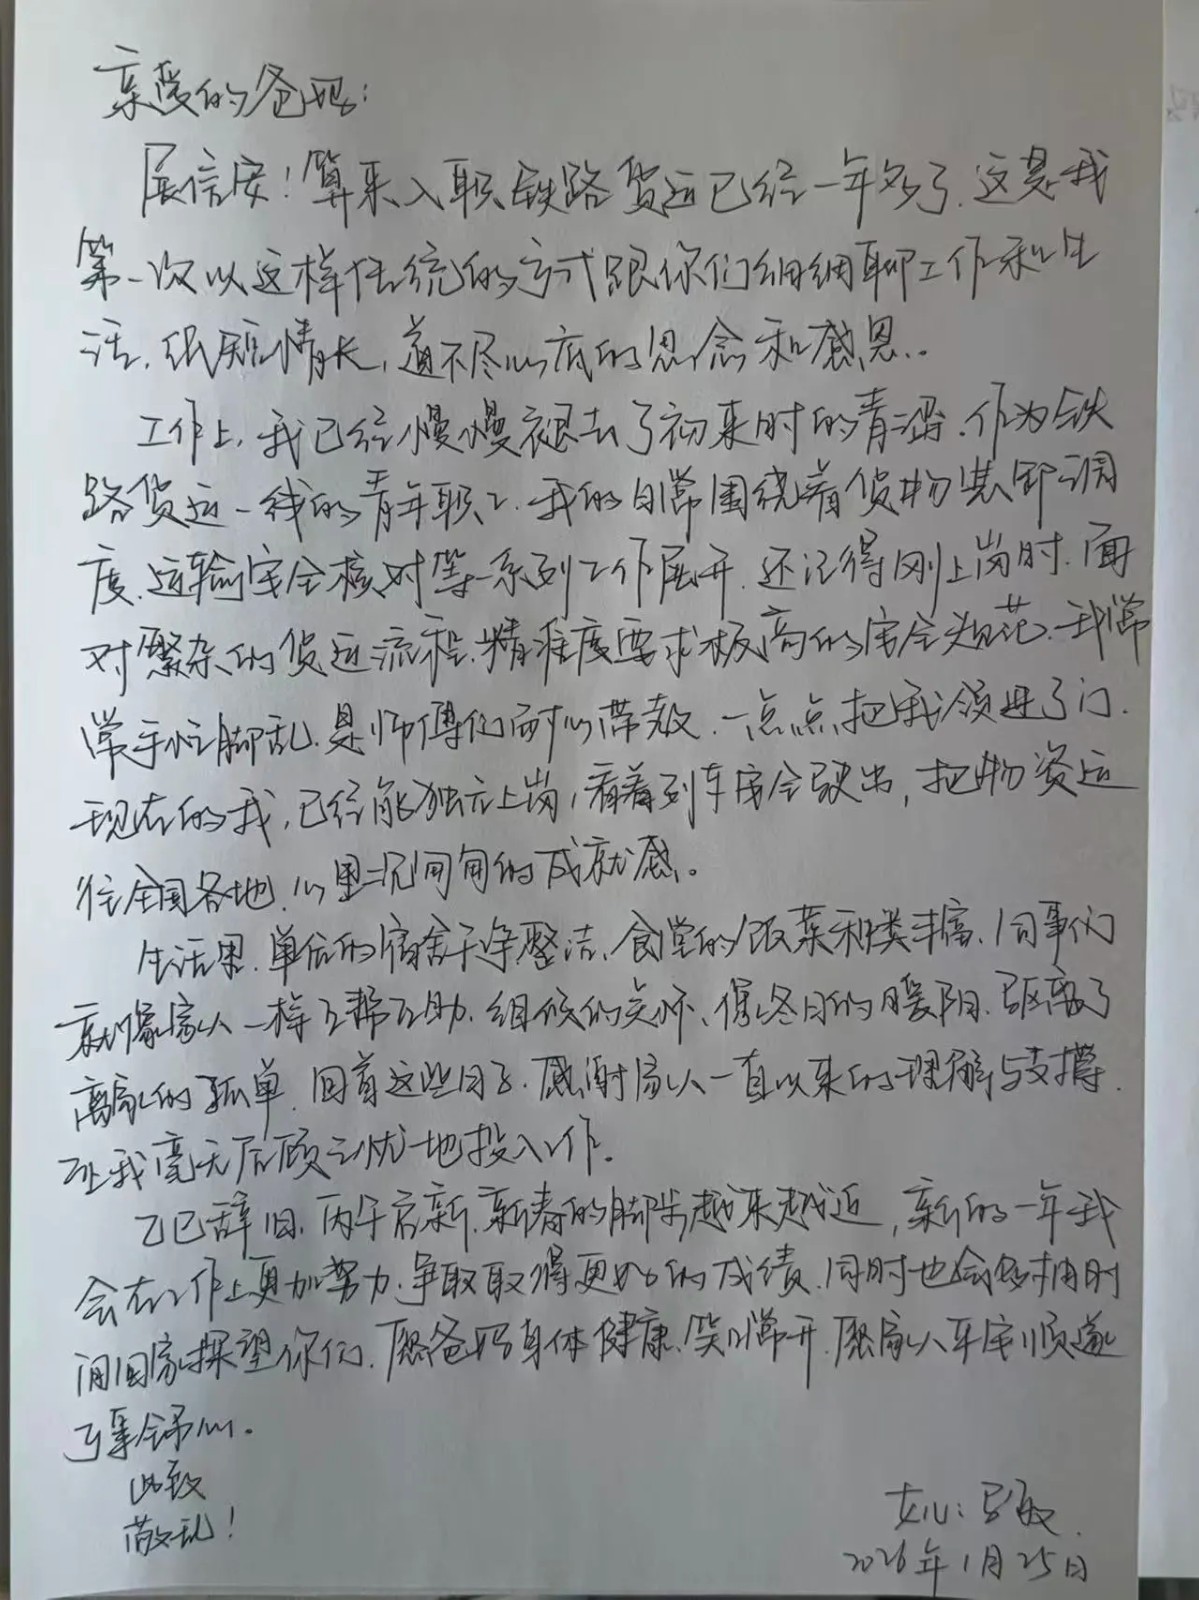 亲爱的爸妈：
展信安！算来入职铁路货运已经一年多了，这是我
第一次以这样传统的方式跟你们细细聊工作和生
活，纸短情长，道不尽心底的思念和感恩。
工作上，我已经慢慢褪去了初来时的青涩，作为铁
路货运一线的青年职工，我的日常围绕着货物装卸调
度、运输安全核对等一系列工作展开，还记得刚上岗时，面
对繁杂的货运流程、精准度要求极高的安全规范，我常
常手忙脚乱，是师傅们耐心带教，一点点把我领进了门，
现在的我，已经能独立上岗，看着列车安全驶出，把物资运
往全国各地，心里沉甸甸的成就感。
生活里，单位的宿舍干净整洁，食堂的饭菜种类丰富，同事们
就像家人一样互帮互助，组织的关怀，像冬日的暖阳，驱散了
离家的孤单，回首这些日子，感谢家人一直以来的理解与支撑，
让我毫无后顾之忧地投入工作。
乙巳辞旧，丙午启新，新春的脚步越来越近，新的一年我
会在工作上更加努力，争取取得更好的成绩，同时也会多抽时
间回家探望你们，愿爸妈身体健康，笑口常开，愿家人平安顺遂
事事舒心。
此致
敬礼！
女儿：敏
2026年1月25日